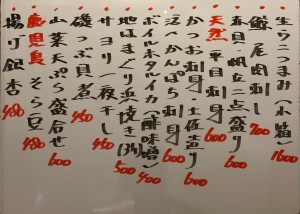 生ウニつまみ(小箱) 1600
鯨尾肉刺し 700
春日・帆立二点盛り 600
天然平目刺身 600
かつお刺身・土佐造り 600
活〆かんぱち刺身 600
ボイルホタルイカ(酢味噌) 400
地はまぐり浜焼き(3ヶ) 500
サヨリ一夜干し 400
磯つぶ貝煮 450
山菜天ぷら盛合せ 600
鹿児島そら豆 480
揚げ銀杏 480